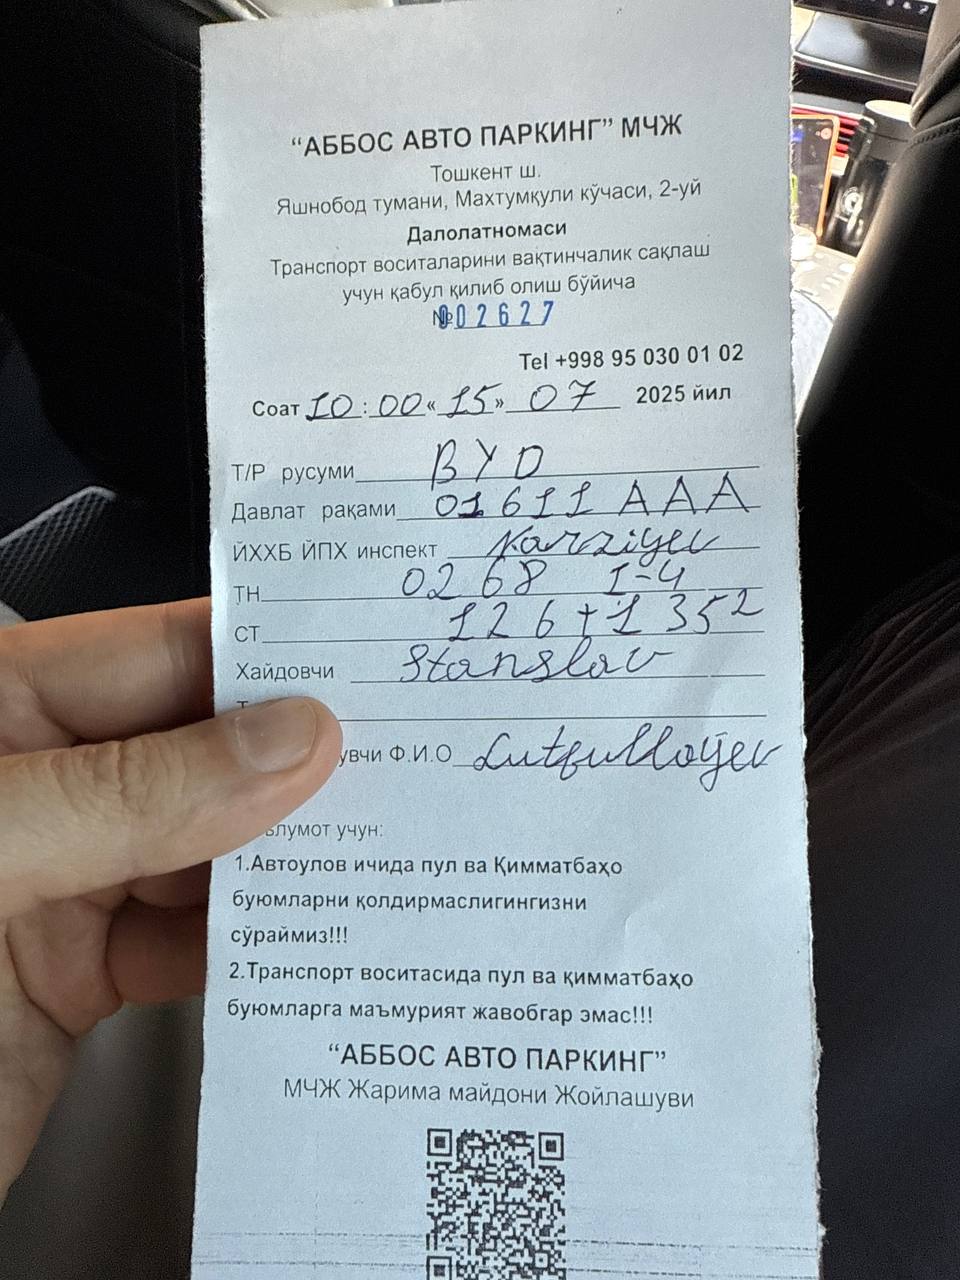 “АББОС АВТО ПАРКИНГ” МЧЖ
Тошкент ш.
Яшнобод тумани, Махтумқули кўчаси, 2-уй
Далолатномаси
Транспорт воситаларини вақтинчалик сақлаш
учун қабул қилиб олиш бўйича
№002627
Tel +998 95 030 01 02
Соат 10:00 «15» 07 2025 йил
Т/Р русуми BYD
Давлат рақами 01611 AAA
ЙХХБ ЙПХ инспект Narziyev
ТН 0268 I-4
СТ 126+1 352
Хайдовчи Stanslav
увчи Ф.И.О Lutfulloyev
ълумот учун:
1.Автоулов ичида пул ва Қимматбаҳо
буюмларни қолдирмаслигингизни
сўраймиз!!!
2.Транспорт воситасида пул ва қимматбаҳо
буюмларга маъмурият жавобгар эмас!!!
“АББОС АВТО ПАРКИНГ”
МЧЖ Жарима майдони Жойлашуви